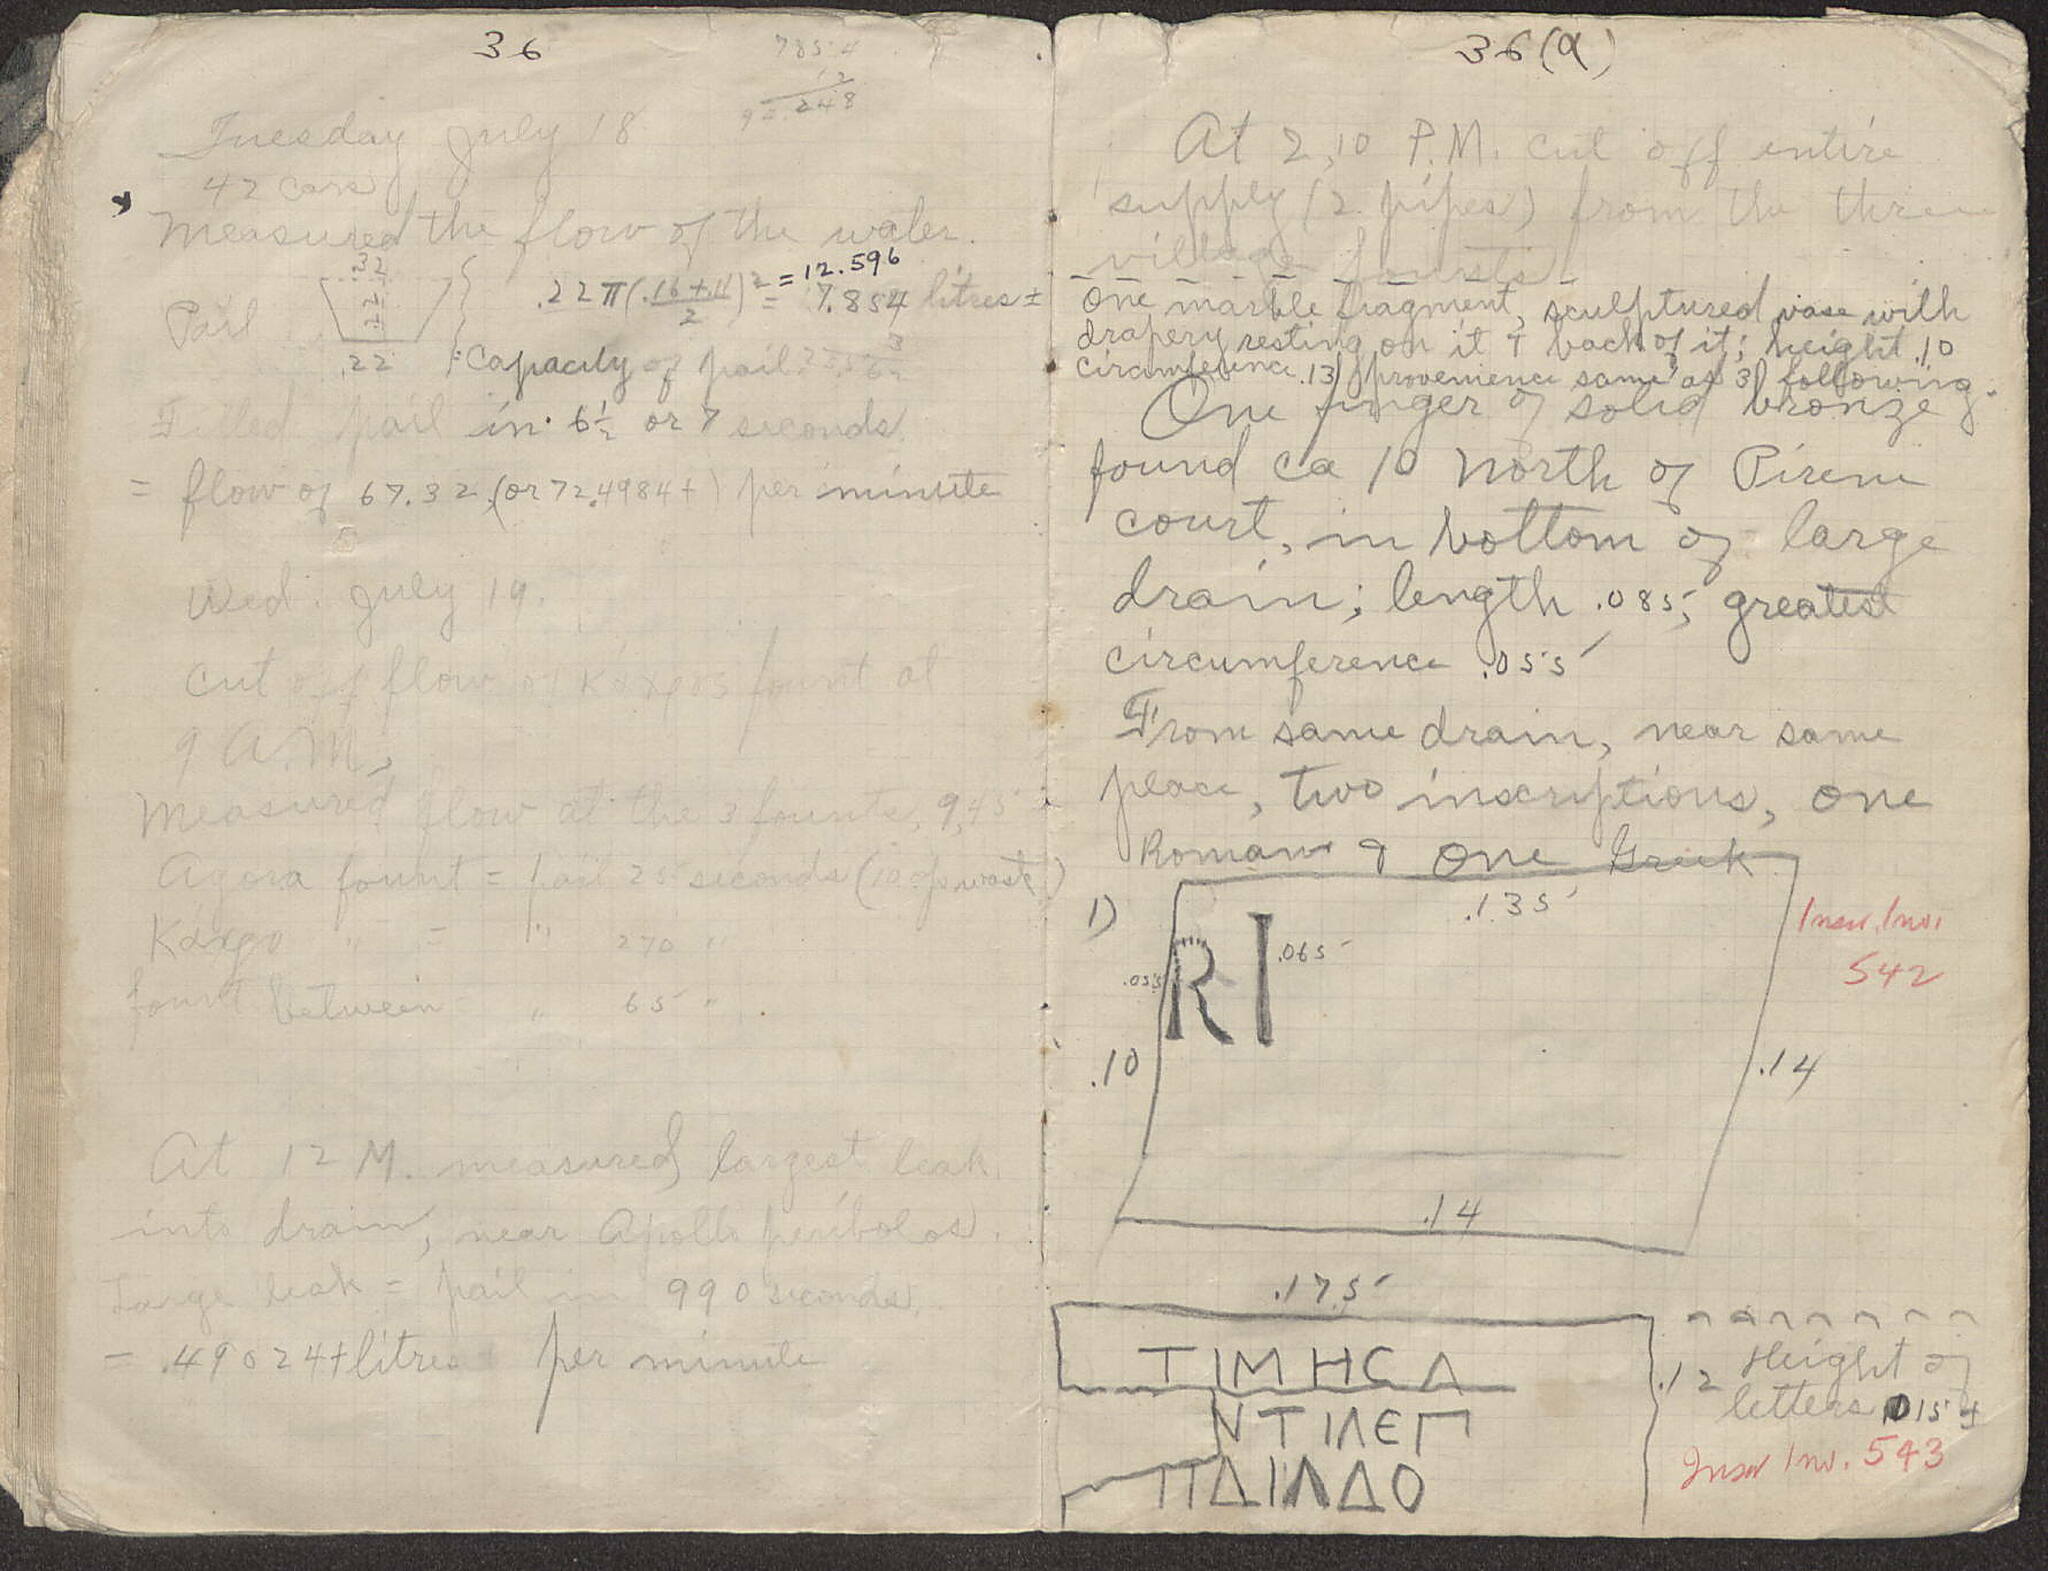 36
785.4
12
92.248
Tuesday July 18
42 cars
Measured the flow of the water.
Pail .32 .22 .22 } .22 π(.16+.11/2)² = 12.596
= 7.854 litres ±
: Capacity of pail
Filled pail in 6½ or 7 seconds
= flow of 67.32 (or 72.4984+) per minute
Wed. July 19.
Cut off flow of fount at
9 A.M.
Measured flow at the 3 founts, 9,45
Agora fount = pail 25 seconds (10% waste)
" = " 270 "
fount between " 65 " .
At 12 M. measured largest leak
into drain, near Apollo peribolos.
Large leak = pail in 990 seconds.
= .49024+ litres per minute
36(a)
At 2,10 P.M. cut off entire
supply (2 pipes) from the three
village founts
One marble fragment, sculptured vase with
drapery resting on it & back of it; height .10
circumference .13; provenience same as 3 following.
One finger of solid bronze
found ca 10 North of Pirene
court, in bottom of large
drain; length .085; greatest
circumference .055
From same drain, near same
place, two inscriptions, one
Roman & one Greek
1) .135
RI .065
.055
Inscr. Inv.
542
.10 .14
.14
.175
ΤΙΜΗCΛ
ΝΤΙΛΕΠ
ΠΔΙΛΔΟ
.12 Height of
letters .015 ±
Inscr Inv. 543